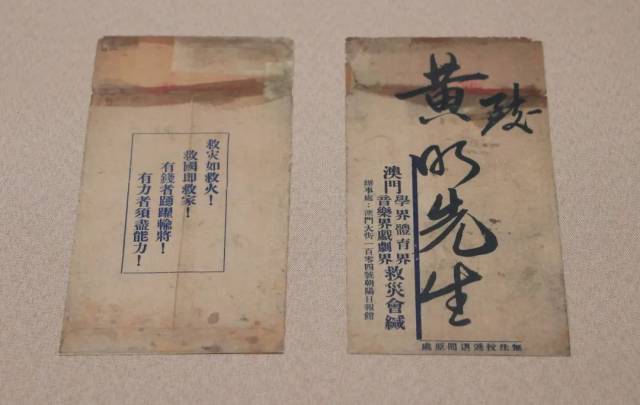 救灾如救火！
救國即救家！
有錢者踴躍輸將！
有力者須盡能力！
黃明先生
澳門學界體育界音樂界戲劇界救災會緘
辦事處：澳門大街一百零四號朝陽日報館
無法投遞退囘原處